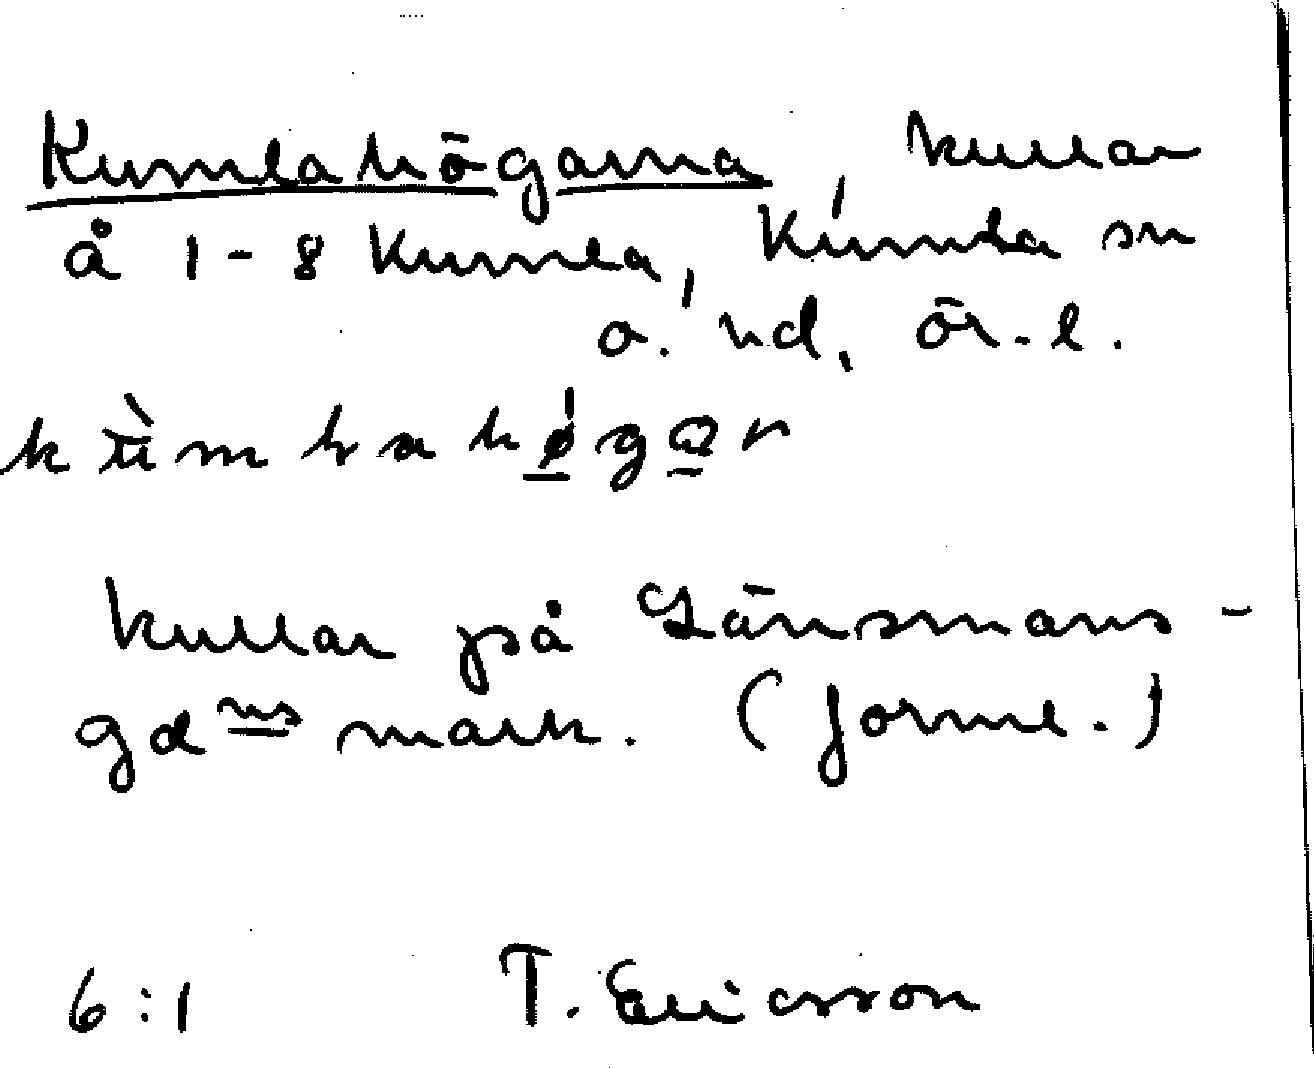 Kumlahögarna, kullar
å 1-8 Kumla, Kumla sn
o. hd, ör. l.
kullar på Länsmans-
gdns mark. (forml.)
6:1 T. Ericsson